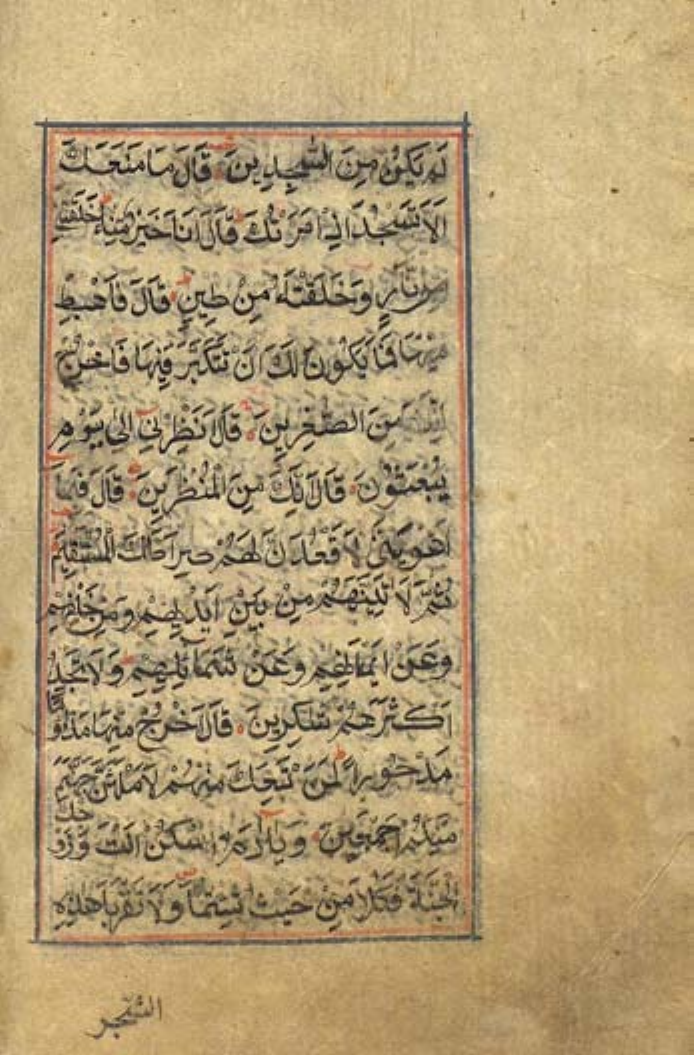 لَمْ يَكُنْ مِنَ السّٰجِدِينَ قَالَ مَا مَنَعَكَ
اَلَّا تَسْجُدَ اِذْ اَمَرْتُكَ قَالَ اَنَا خَيْرٌ مِنْهُ خَلَقْتَنِي
مِنْ نَارٍ وَخَلَقْتَهُ مِنْ طِينٍ قَالَ فَاهْبِطْ
مِنْهَا فَمَا يَكُونُ لَكَ اَنْ تَتَكَبَّرَ فِيهَا فَاخْرُجْ
اِنَّكَ مِنَ الصّٰغِرِينَ قَالَ اَنْظِرْنِي اِلٰى يَوْمِ
يُبْعَثُونَ قَالَ اِنَّكَ مِنَ الْمُنْظَرِينَ قَالَ فَبِمَا
اَغْوَيْتَنِي لَاَقْعُدَنَّ لَهُمْ صِرَاطَكَ الْمُسْتَقِيمَ
ثُمَّ لَاٰتِيَنَّهُمْ مِنْ بَيْنِ اَيْدِيهِمْ وَمِنْ خَلْفِهِمْ
وَعَنْ اَيْمَانِهِمْ وَعَنْ شَمَائِلِهِمْ وَلَا تَجِدُ
اَكْثَرَهُمْ شٰكِرِينَ قَالَ اخْرُجْ مِنْهَا مَذْؤُمًا
مَدْحُورًا لَمَنْ تَبِعَكَ مِنْهُمْ لَاَمْلَئَنَّ جَهَنَّمَ
مِنْكُمْ اَجْمَعِينَ وَيَا اٰدَمُ اسْكُنْ اَنْتَ وَزَوْجُكَ
الْجَنَّةَ فَكُلَا مِنْ حَيْثُ شِئْتُمَا وَلَا تَقْرَبَا هٰذِهِ
الشَّجَر